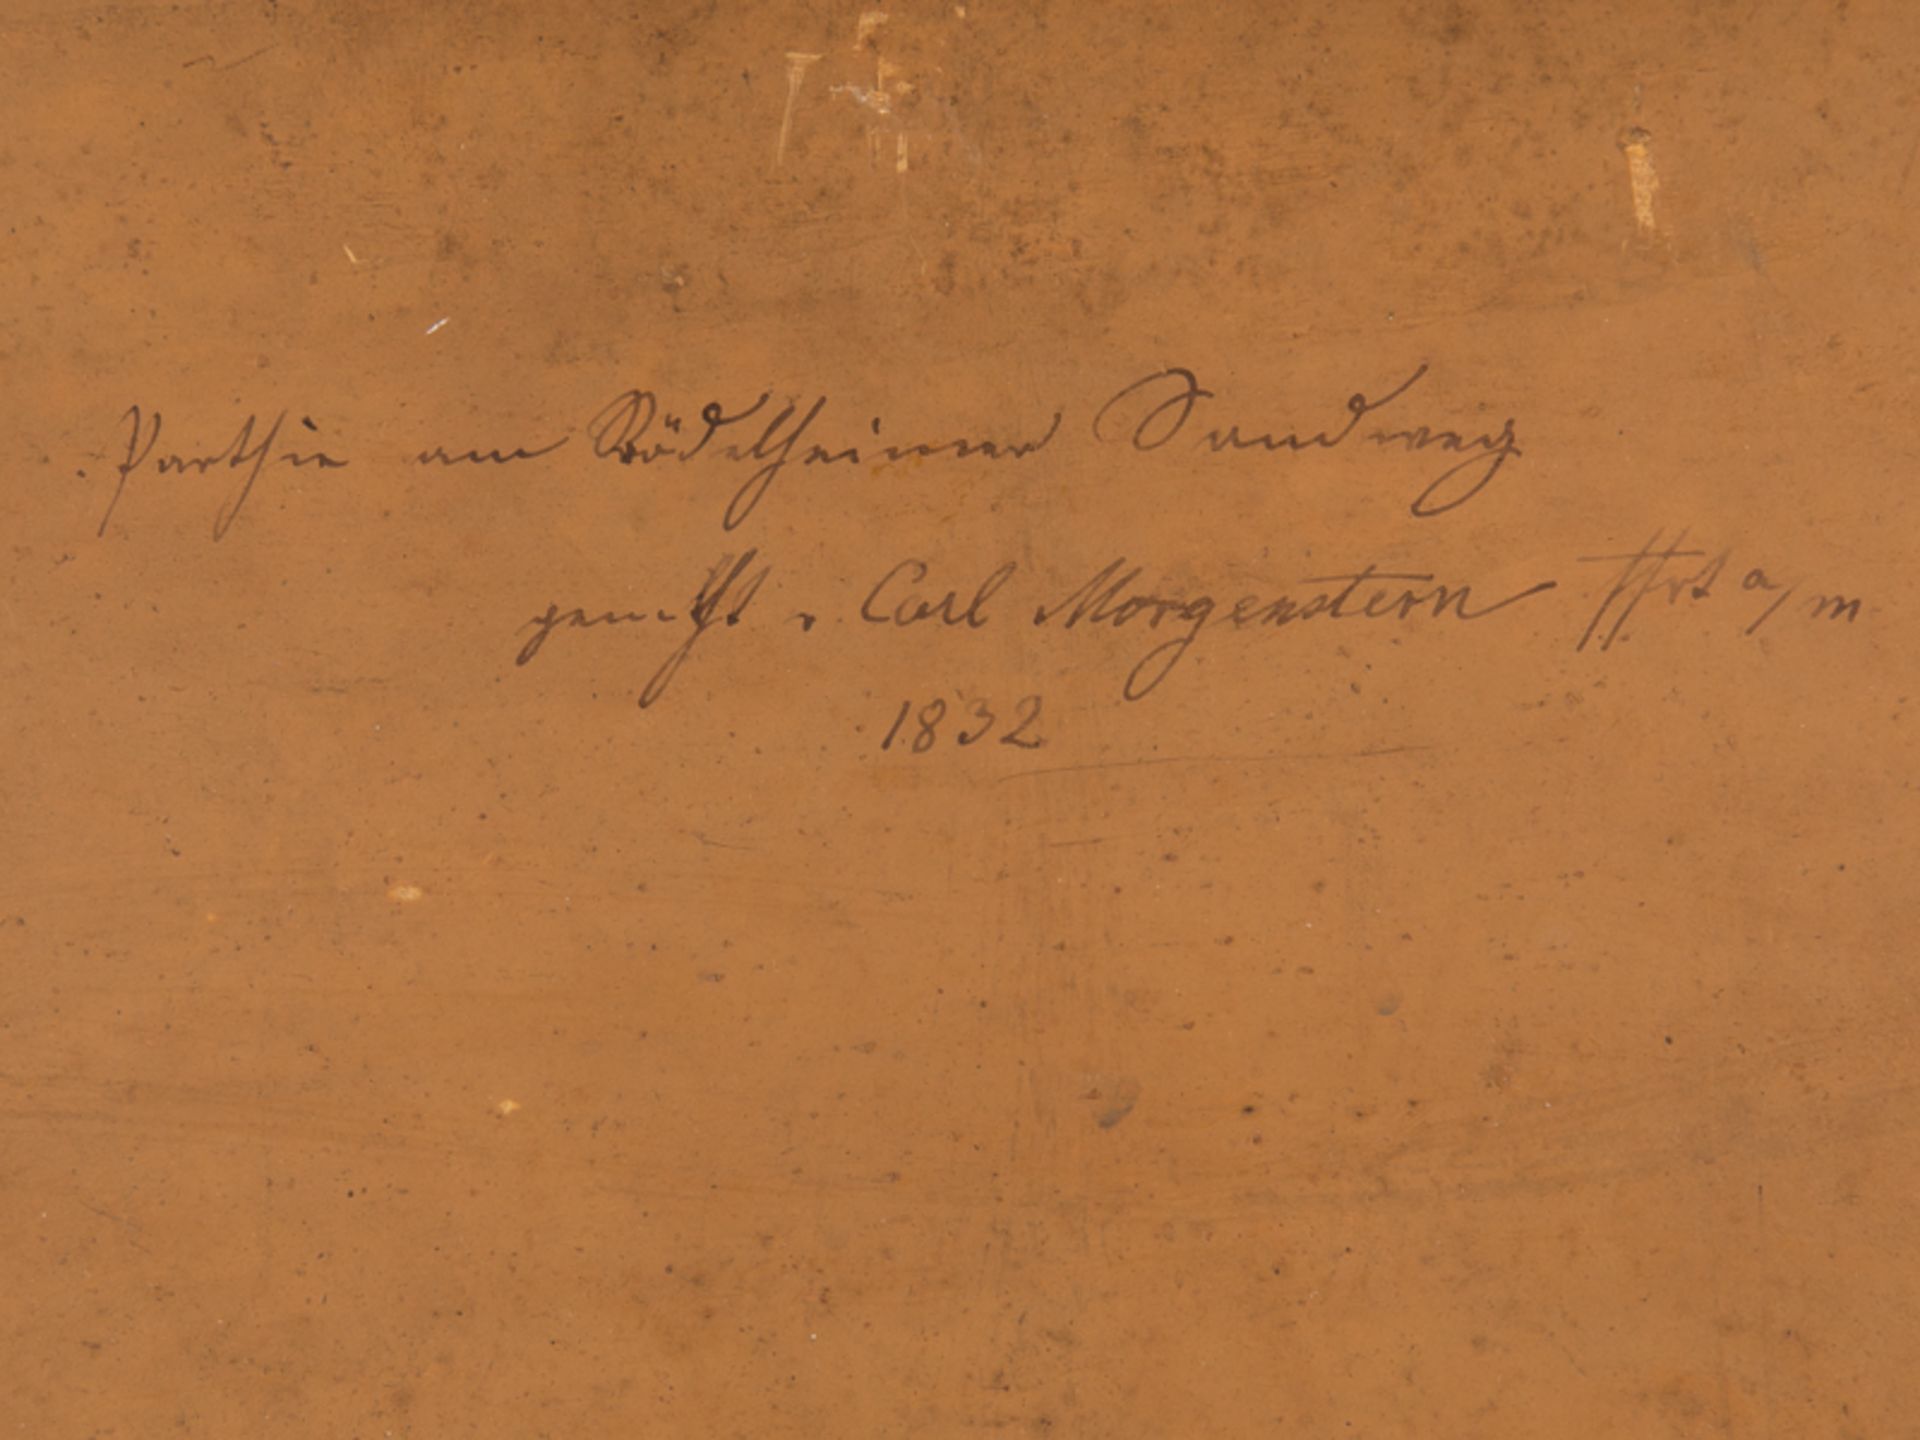 Parthie am Rödelheimer Sandweg
gemahlt v. Carl Morgenstern Ffrt a/m
1832